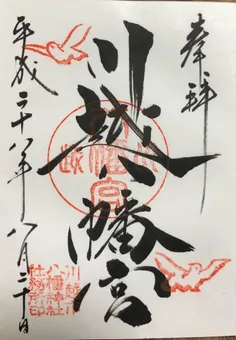 奉拝
川越八幡宮
平成二十八年八月二十日
川越市
八幡神社
社務所印